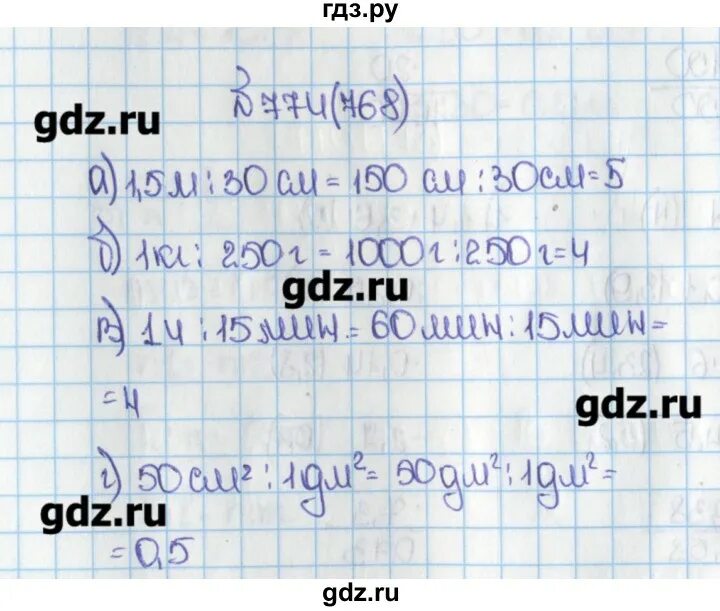 гдз.ру
№774(768)
gdz.ru
а) 1,5м : 30 см = 150 см : 30см = 5
б) 1кг : 250г = 1000г : 250г = 4
gdz.ru
в) 1ч : 15мин = 60мин : 15мин =
= 4
gdz.ru
г) 50см² : 1дм² = 50дм² : 1дм² =
gdz.ru
= 0,5
gdz.ru